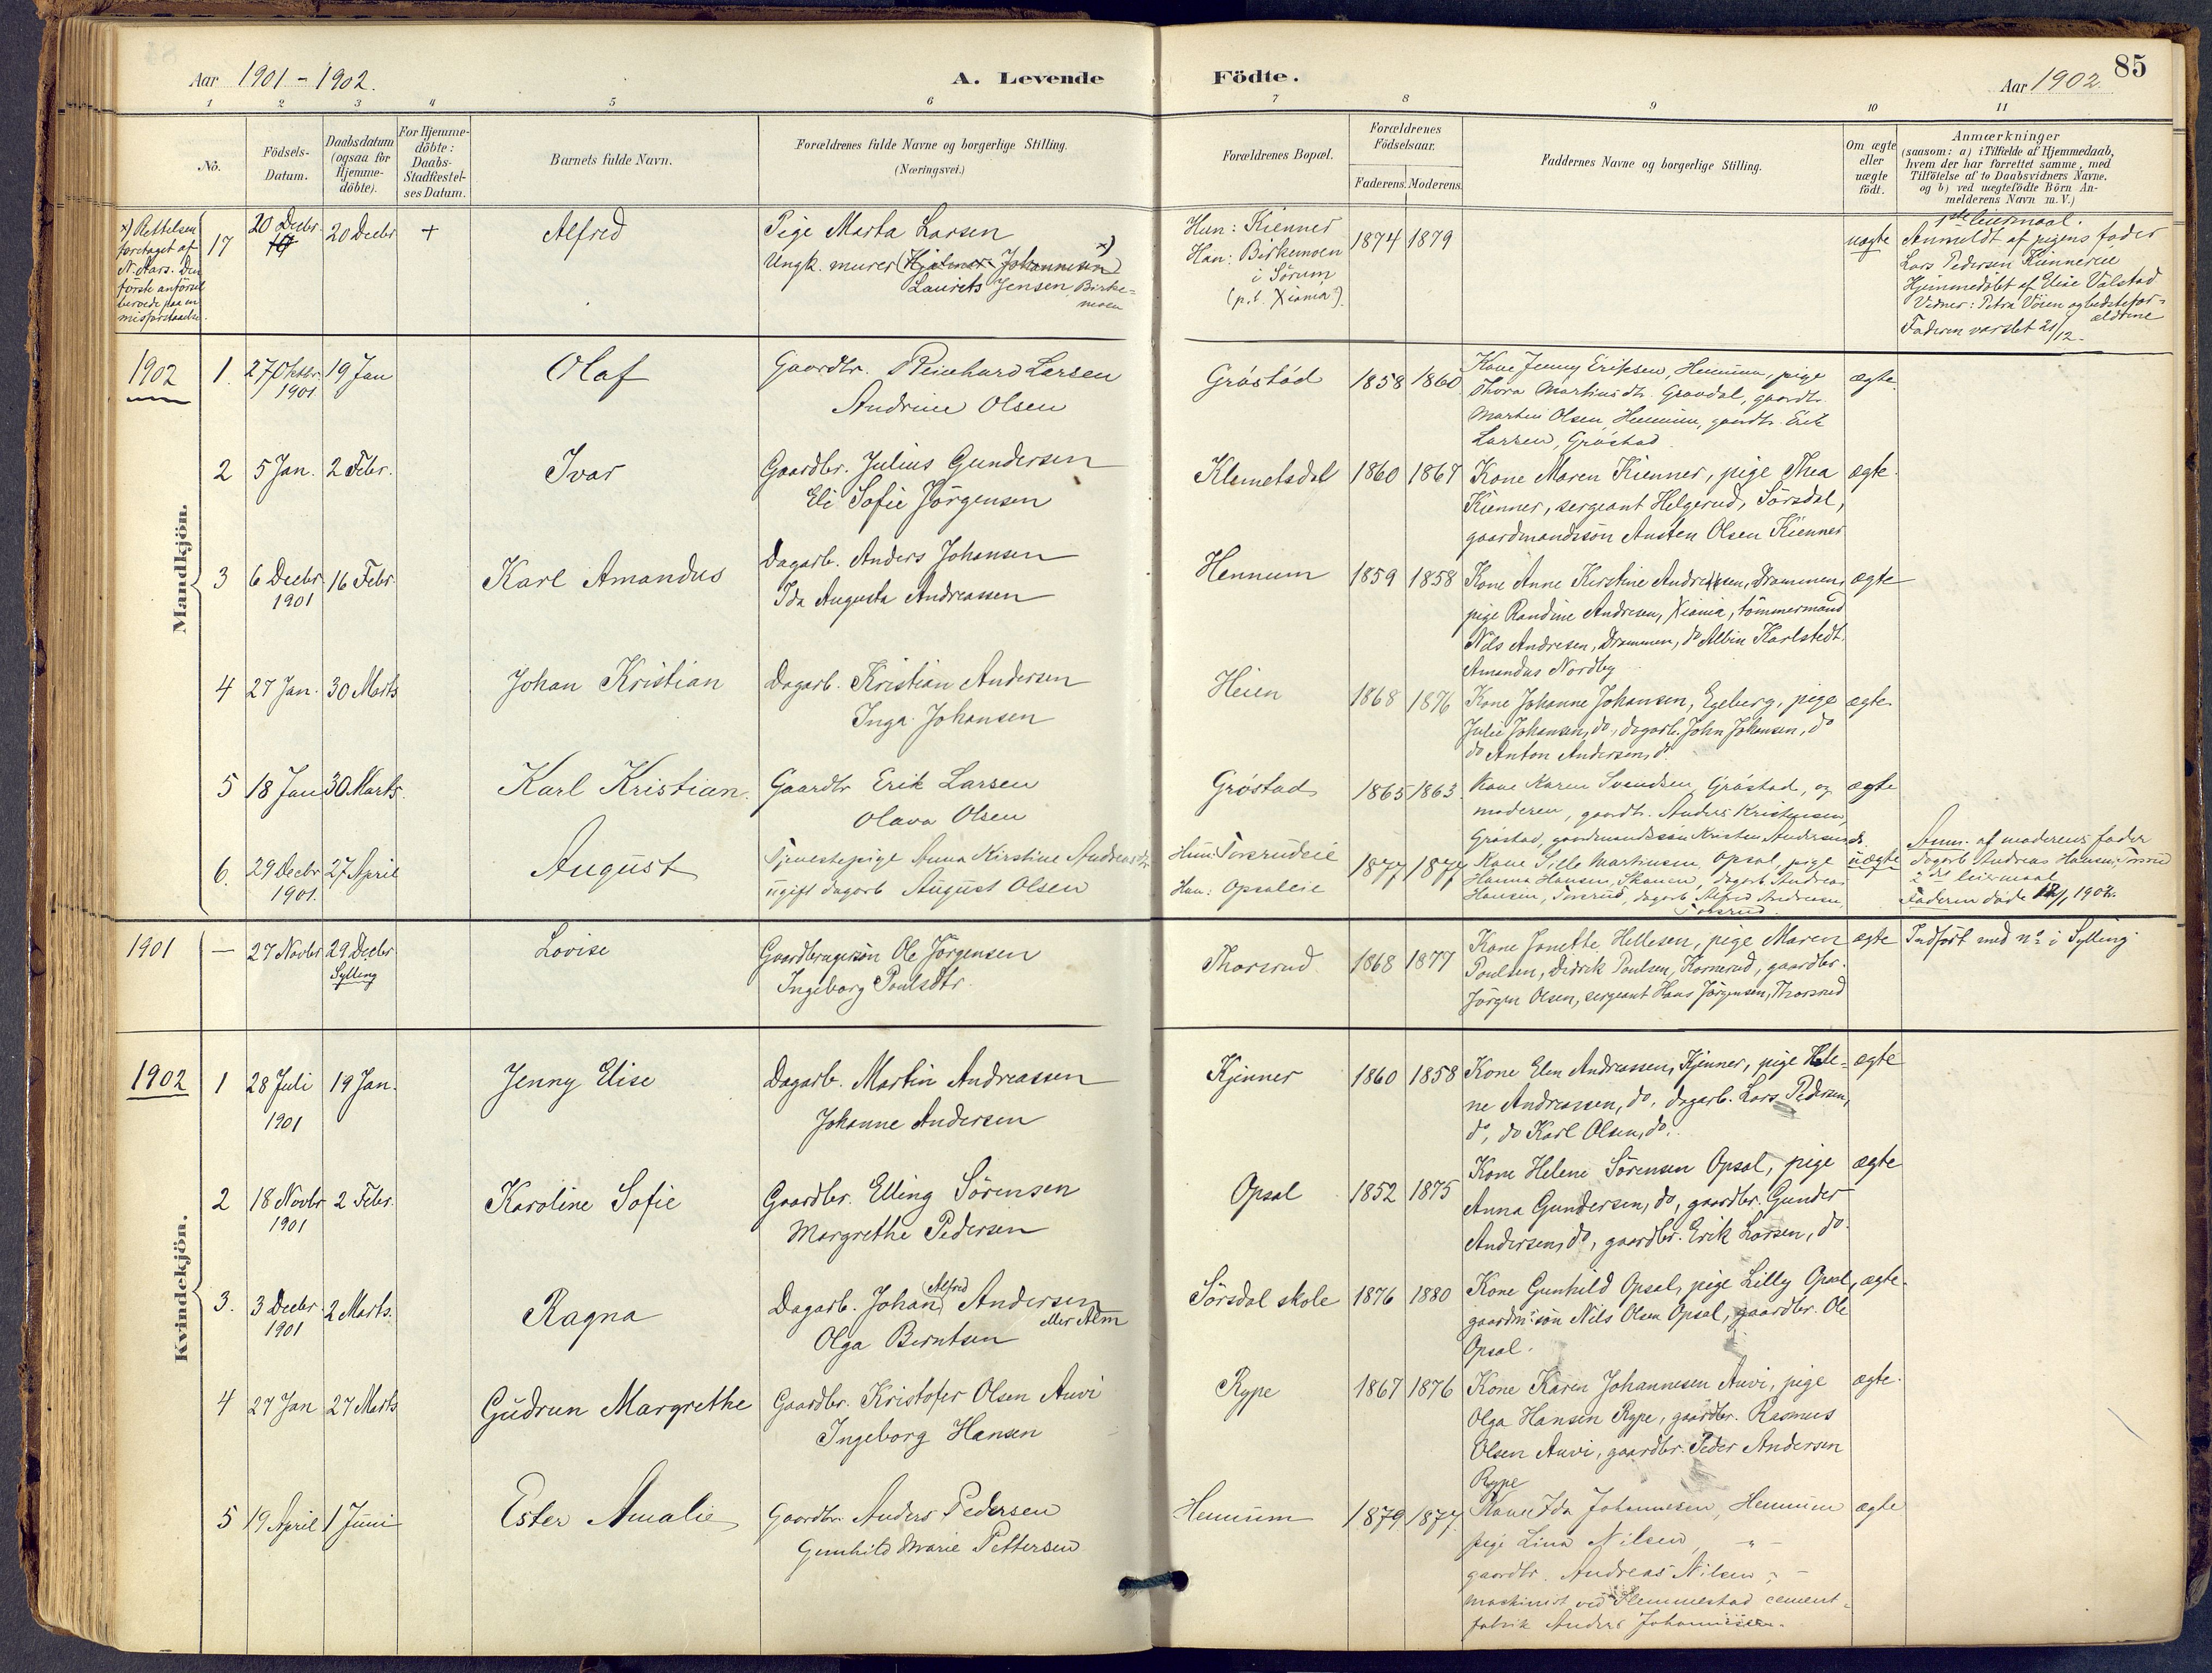 Aar 1901 - 1902.
A. Levende Födte.
Aar 1902
85
1 2 3 4 5 6 7 8 9 10 11
No.
Födsels-Datum.
Daabsdatum (ogsaa for Hjemme-döbte).
For Hjemme-döbte: Daabs-Stadfæstel-ses Datum.
Barnets fulde Navn.
Forældrenes fulde Navne og borgerlige Stilling.
(Næringsvei.)
Forældrenes Bopæl.
Forældrenes Födselsaar.
Faderens. Moderens.
Faddernes Navne og borgerlige Stilling.
Om ægte eller uægte födt.
Anmærkninger
(saasom: a) i Tilfælde af Hjemmedaab, hvem der har forrettet samme, med Tilföielse af to Daabsvidners Navne. og b) ved uægtefödte Börn Anmelderens Navn m. V.)
x) Rettelsen
foretaget af
N. Aars. Den
første anførsel
beroede paa en
misforstaaelse.
17 20 Decbr. 20 Decbr + Alfred
Pige Marta Larsen
Ungk. murer (Hjalmar Johannesen) x)
Laurits Jensen Birke-
mosen
Hun: Kienner
Han: Birkemoen
i Sörum
(p.t. Xiania).
1874 1879
uægte
1ste leiermaal.
Anmeldt af pigens fader
Lars Pedersen Kiennereie
Hjemmedöbt af Elise Valstad
Vidner: Petra Vöien og bedstefor-
ældrene
Faderen varslet 21/12.
Mandkjön.
1902 1. 27 Oktbr. 1901 19 Jan Olaf
Gaardbr. Reinhard Larsen
Andrine Olsen
Gröstad 1858 1860
Kone Jenny Eriksen, Hennum, pige
Thora Martinsdtr. Graadal, gaardbr.
Martin Olsen, Hennum, gaardbr. Erik
Larsen, Gröstad
ægte.
2 5 Jan. 2 Febr. Ivar
Gaardbr. Julius Gundersen
Eli Sofie Jörgensen
Klemetsdal 1860 1867
Kone Maren Kienner, pige Thea
Kienner, sergeant Helgerud, Sörsdal,
gaardmandssön Austen Olsen Kienner
ægte.
3 6 Decbr. 1901 16 Febr. Karl Amandus
Dagarb. Anders Johansen
Ida Augusta Andreassen
Hennum 1859 1858
Kone Anne Kirstine Andresen, Drammen,
pige Randine Andresen, Xiania, tömmermand
Nils Andresen, Drammen, do Albin Karlstedt.
Amandus Nordby
ægte
4 27 Jan. 30 Marts Johan Kristian
Dagarb. Kristian Andersen
Inga Johansen
Heien 1868 1876
Kone Johanne Johansen, Egeberg, pige
Julie Johansen, do, dagarb. John Johansen, do
do Anton Andersen, do.
ægte.
5 18 Jan 30 Marts. Karl Kristian.
Gaardbr Erik Larsen
Olava Olsen
Gröstad 1865 1863.
Kone Karen Svendsen Gröstad, og
moderen, gaardbr. Anders Kristensen,
Gröstad, gaardmandssön Kristen Andersen do.
ægte
6. 29 Decbr 1901. 27 April August
Tjenestepige Anna Kirstine Andreasdtr
ugift dagarb August Olsen
Hun: Torsrudeie
Han: Opsaleie
1877 1877
Kone Sille Martinsen, Opsal, pige
Hanna Hansen, Skauen, dagarb Andreas
Hansen, Torsrud, dagarb Alfred Andresen,
Torsrud.
uægte
Anm. af moderens fader
dagarb Andreas Hansen Torsrud
2det leiermaal
Faderen döde 12/1 1902.
1901 — 27 Novbr 29 Decbr Sylling Lovise
Gaardbrugersön Ole Jörgensen
Ingeborg Poulsdtr.
Thorsrud 1868 1877
Kone Janette Hellesen, pige Maren
Poulsen, Didrik Poulsen, Kornerud, gaardbr.
Jörgen Olsen, sergeant Hans Jörgensen, Thorsrud
ægte
Indfört med no i Sylling.
Kvindekjön.
1902 1 28 Juli 1901 19 Jan. Jenny Elise
Dagarb. Martin Andreassen
Johanne Andersen
Kjenner 1860 1858
Kone Elen Andreassen, Kjenner, pige Hele-
ne Andreassen, do. dagarb. Lars Pedersen,
do, do Karl Olsen, do.
ægte
2 18 Novbr 1901 2 Febr. Karoline Sofie
Gaardbr. Elling Sörensen
Margrethe Pedersen
Opsal 1852 1875
Kone Helene Sörensen Opsal, pige
Anna Gundersen, do, gaardbr. Gunder
Andersen, do, gaardbr. Erik Larsen, do
ægte
3. 3 Decbr. 1901 2 Marts. Ragna
Dagarb. Johan (Alfred) Andersen
eller Alm
Olga Berntsen
Sörsdal skole 1876 1880
Kone Gunhild Opsal, pige Lilly Opsal,
gaardm.sön Nils Olsen Opsal, gaardbr. Ole
Opsal.
ægte.
4 27 Jan 27 Marts Gudrun Margrethe
Gaardbr. Kristofer Olsen Auvi
Ingeborg Hansen
Rype 1867 1876
Kone Karen Johannesen Auvi, pige
Olga Hansen Rype, gaardbr. Rasmus
Olsen Auvi, gaardbr. Peder Andersen
Rype
ægte.
5 19 April 1 Juni Ester Amalie
Gaardbr. Anders Pedersen
Gunhild Marie Pettersen
Hennum 1879 1877.
Kone Ida Johannesen, Hennum
pige Lina Nilsen, - " -
gaardbr. Andreas Nilsen, -
maskinist ved Slemmestad cement-
fabrik Anders Johannesen.
ægte